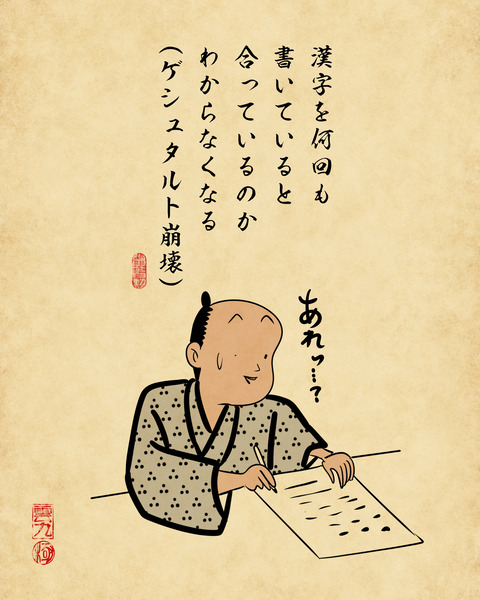 漢字を何回も
書いていると
合っているのか
わからなくなる
(ゲシュタルト崩壊)
あれッ…?